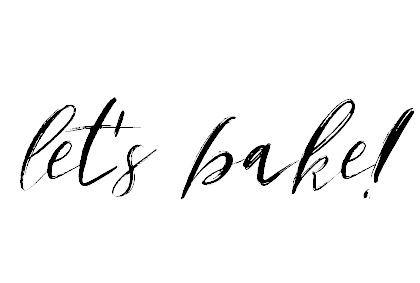 let's bake!